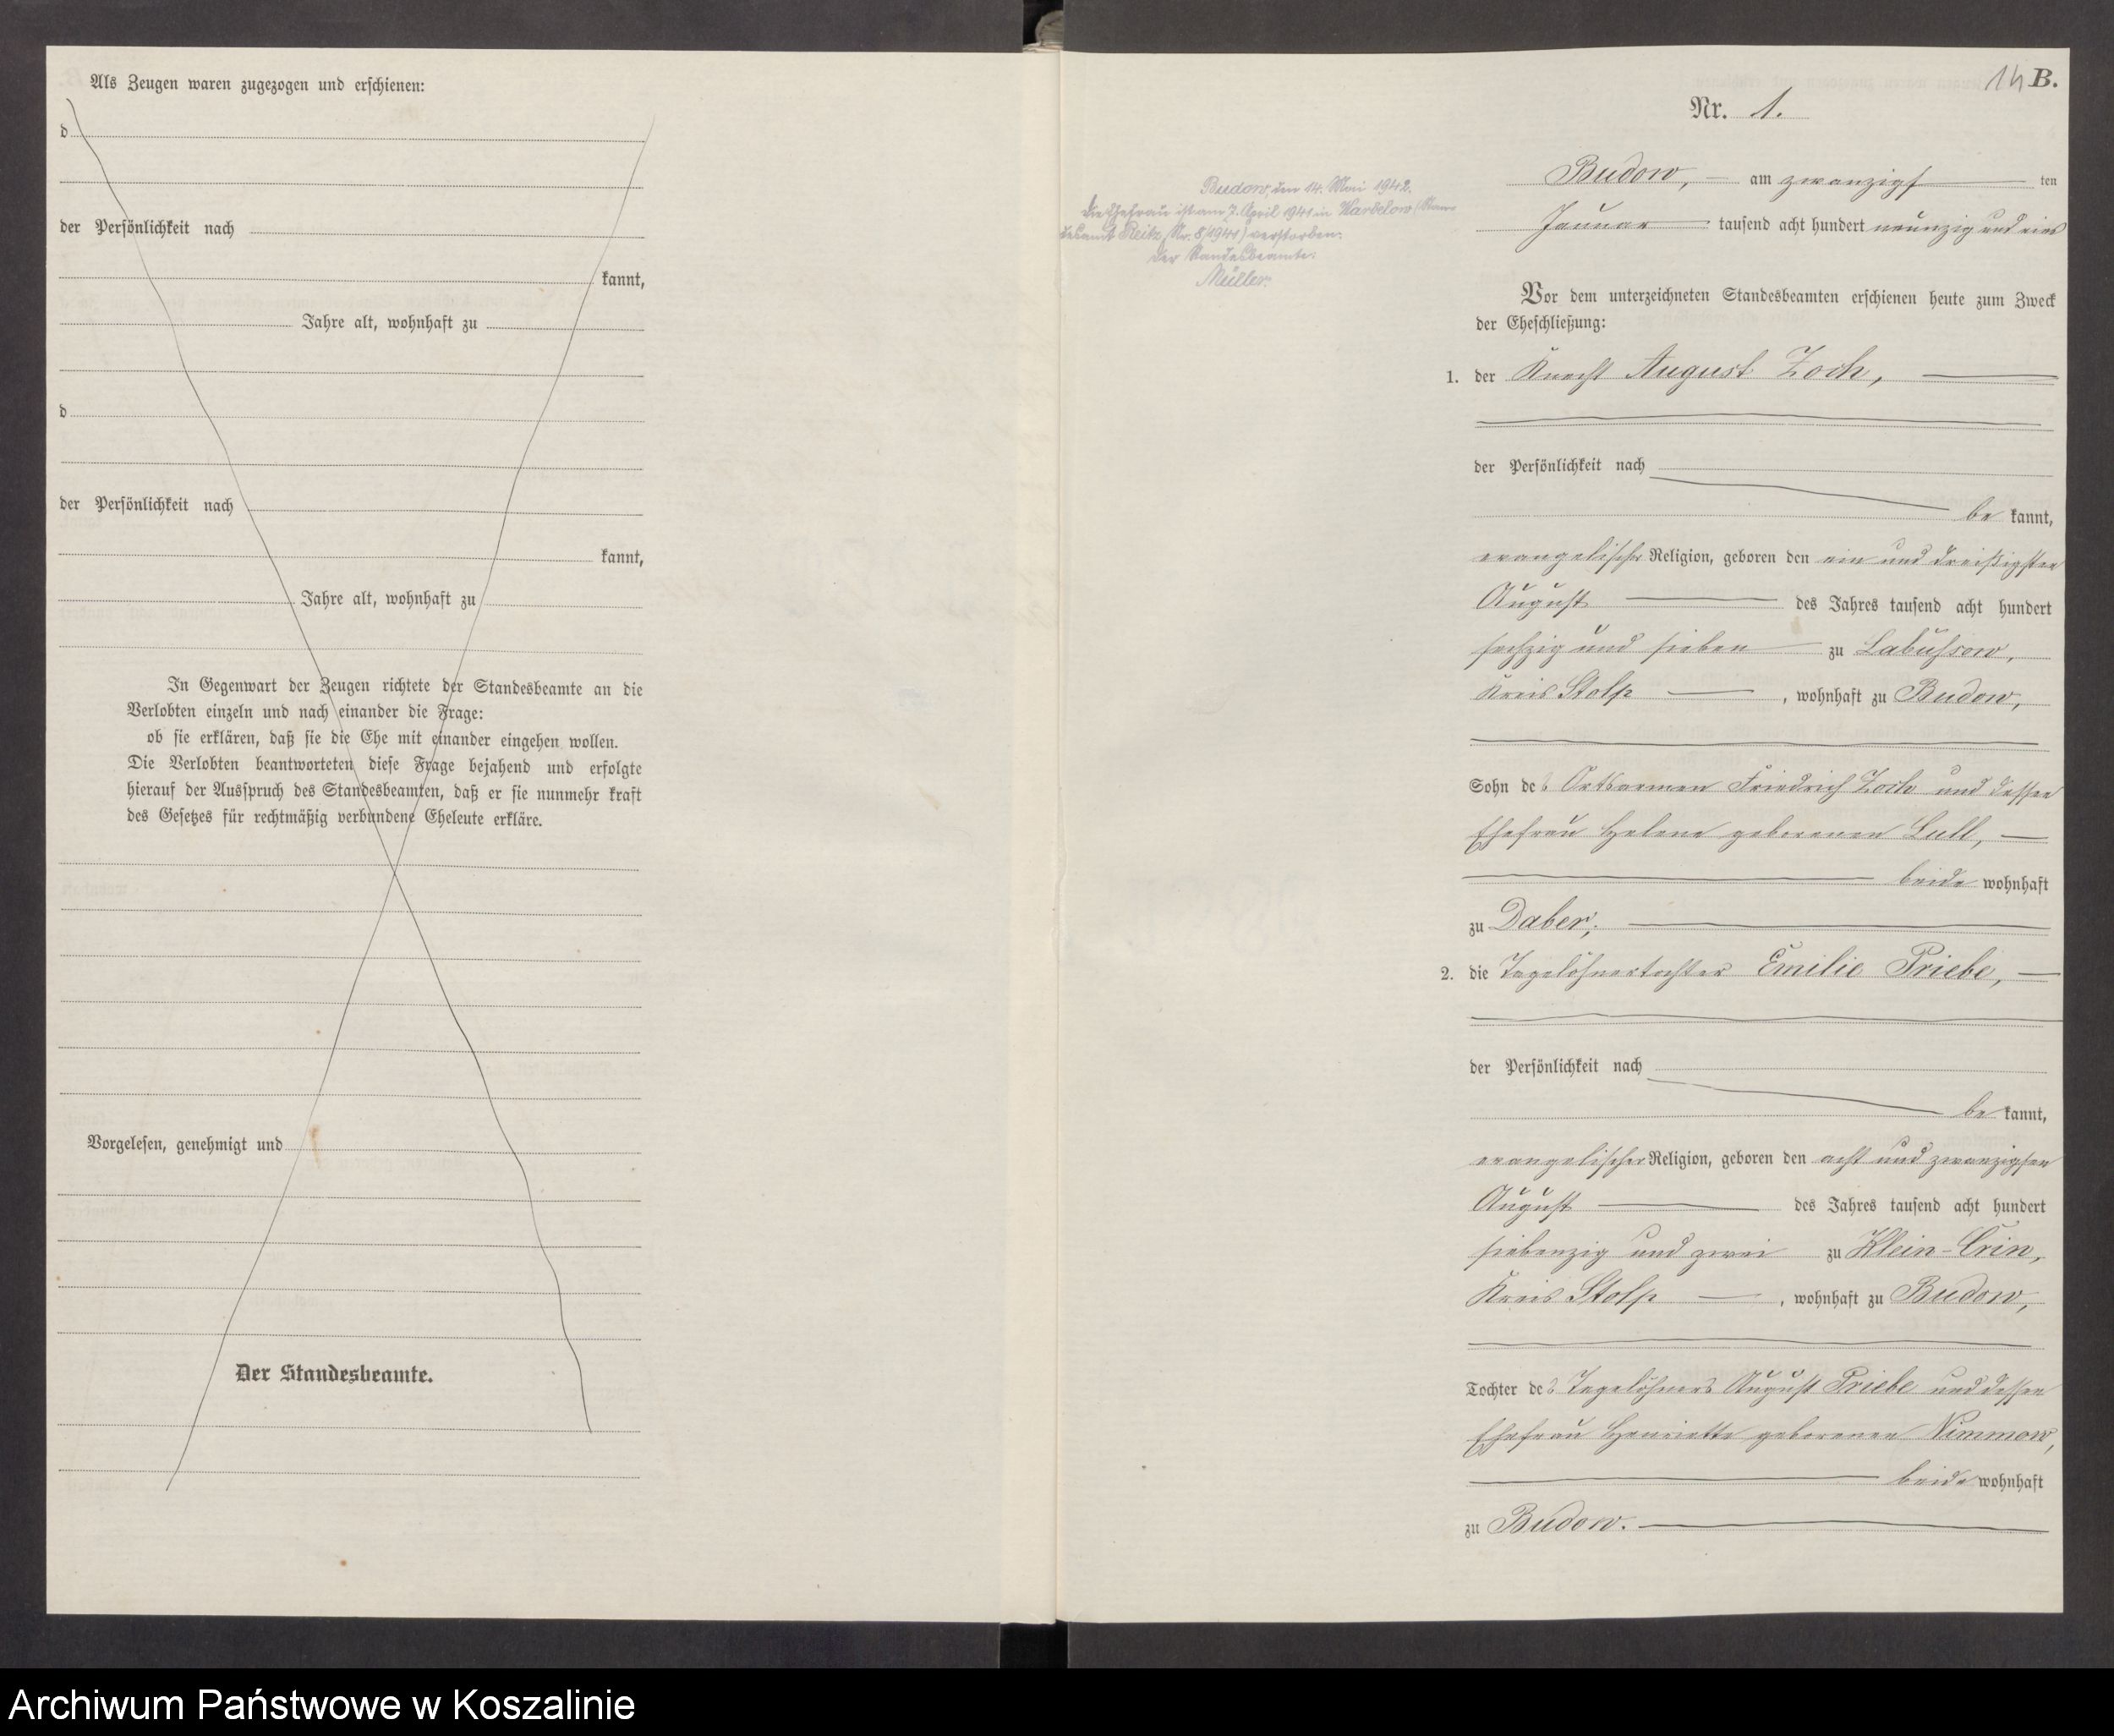 Als Zeugen waren zugezogen und erschienen:
d
der Persönlichkeit nach
kannt,
Jahre alt, wohnhaft zu
d
der Persönlichkeit nach
kannt,
Jahre alt, wohnhaft zu
In Gegenwart der Zeugen richtete der Standesbeamte an die
Verlobten einzeln und nach einander die Frage:
ob sie erklären, daß sie die Ehe mit einander eingehen wollen.
Die Verlobten beantworteten diese Frage bejahend und erfolgte
hierauf der Ausspruch des Standesbeamten, daß er sie nunmehr kraft
des Gesetzes für rechtmäßig verbundene Eheleute erkläre.
Vorgelesen, genehmigt und
Der Standesbeamte.
14 B.
Nr. 1.
Budow, den 14. Mai 1942.
Die Ehefrau ist am 7. April 1941 in Warbelow (Stan-
desamt Reitz Nr. 8/1941) verstorben.
Der Standesbeamte:
Müller.
Budow, am zwanzigsten
Januar tausend acht hundert neunzig und eins
Vor dem unterzeichneten Standesbeamten erschienen heute zum Zweck
der Eheschließung:
1. der Knecht August Zoch,
der Persönlichkeit nach
be kannt,
evangelischer Religion, geboren den ein und dreißigsten
August des Jahres tausend acht hundert
sechzig und sieben zu Labuhsow,
Kreis Stolp, wohnhaft zu Budow,
Sohn des Ortsarmen Friedrich Zoch und dessen
Ehefrau Helene geborenen Lull,
beide wohnhaft
zu Daber;
2. die Tagelöhnertochter Emilie Priebe,
der Persönlichkeit nach
be kannt,
evangelischer Religion, geboren den acht und zwanzigsten
August des Jahres tausend acht hundert
siebenzig und zwei zu Klein-Crin,
Kreis Stolp, wohnhaft zu Budow,
Tochter des Tagelöhners August Priebe und dessen
Ehefrau Henriette geborenen Nimmow,
beide wohnhaft
zu Budow.
Archiwum Państwowe w Koszalinie